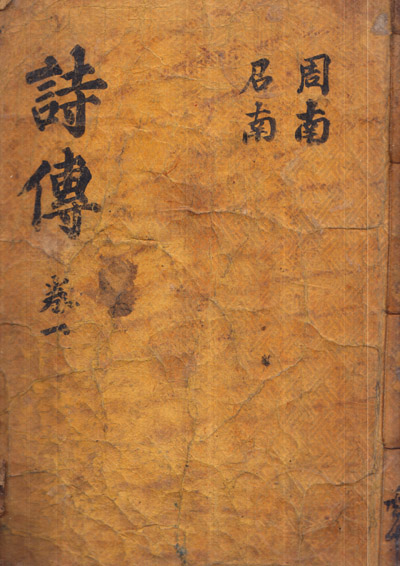 周南
召南
詩傳
卷一